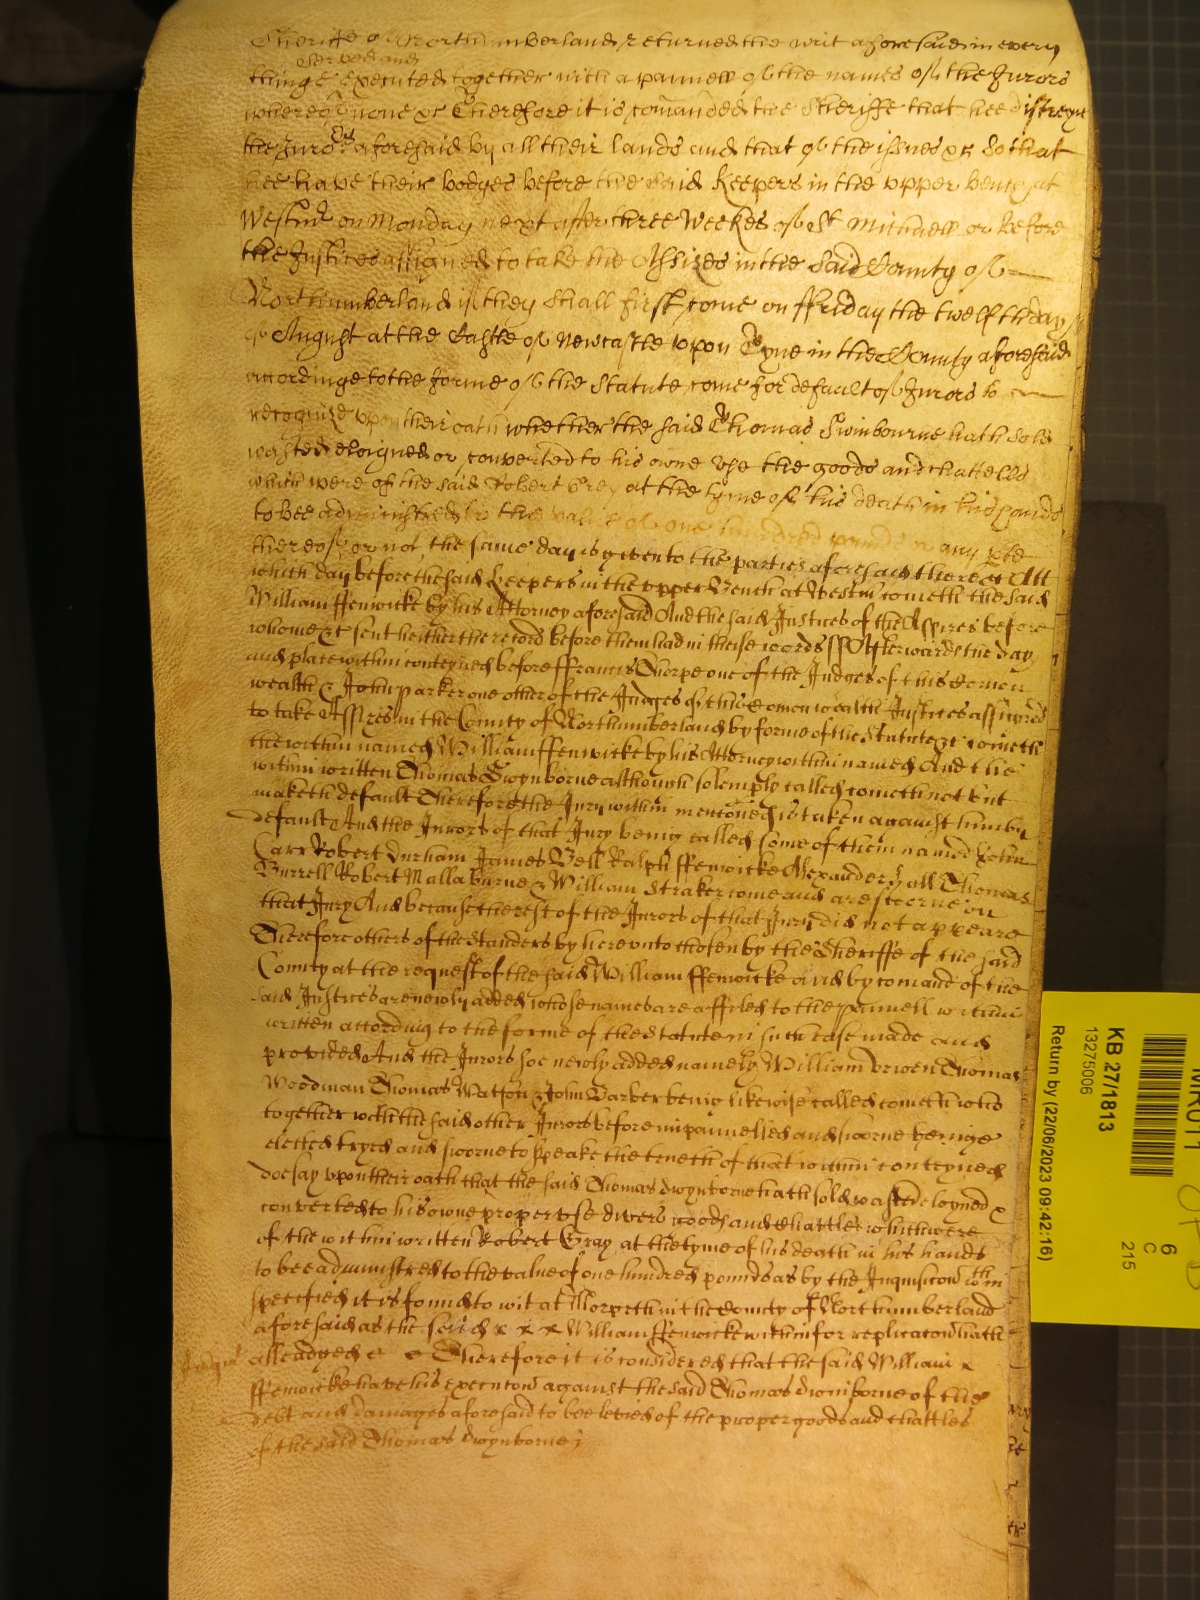 Sheriffe of Northumberland returned the writ aforesaid in every
served and
thinge executed together with a pannell of the names of the Jurors
whereof none &c Therefore it is comanded the Sheriffe that hee distreyn
the Jurors aforesaid by all their lands and that of the issues &c So that
hee have their bodyes before the said Keepers in the upper bench at
Westmr on Monday next after three Weekes of St Michaell or before
the Justices assigned to take the Assizes in the said County of
Northumberland if they shall first come on ffriday the twelfth day
of August at the Castle of Newcastle upon Tyne in the County aforesaid
accordinge to the forme of the Statute come for default of Jurors to
recognize upon their oath whether the said Thomas Swinbourne hath sold
wasted eloigned or converted to his owne use the goods and chattells
which were of the said Robert Grey at the tyme of his death in his hands
to bee administred to the value of one hundred pounds or any pte
thereof or not the same day is given to the parties aforesaid there &c Att
which day before the said Keepers in the upper Bench at Westmr cometh the said
William ffenwicke by his Attorney aforesaid And the said Justices of the Assizes before
whome &c sent heither the record before them had in theise words ss Afterwards the day
and place within conteyned before ffrancis Thorpe one of the Judges of this Comon
wealth & John parker one other of the Judges of this Comonwealth Justices assigned
to take Assizes in the County of Northumberland by forme of the Statute &c cometh
the within named William ffenwicke by his Attorney within named And the
within written Thomas Swynborne although solemply called cometh not but
maketh default Therefore the Jury within mentoned is taken against him by
default And the Jurors of that Jury being called some of them named
Carr Robert Durham James Bell Ralph ffenwicke Alexander Thomas
Burrell Robert Mallaburne & William Straker come and are sworne on
that Jury And because the rest of the Jurors of that Jury did not appeare
Therefore others of the standers by hereunto chosen by the Sheriffe of the said
County at the request of the said William ffenwicke and by comand of the
said Justices are newly added whose names are affiled to the pannell within
written according to the forme of the Statute in such case made and
provided And the Jurors soe newly added namely William Thomas
Woodman Thomas Watson & John Barber being likewise called cometh who
together with the said other Jurors before impannelled and sworne beinge
elected tryed and sworne to speake the trueth of that within conteyned
doe say upon their oath that the said Thomas Swynborne hath sold wasted eloyned &
converted to his owne proper use divers goods and Chattles which were
of the within written Robert Gray at the tyme of his death in his hands
to bee administred to the value of one hundred pounds as by the Inquisicon within
specified it is found to wit at Morpeth in the County of Northumberland
aforesaid as the said x x x William ffenwicke within for replicacon hath
alleadged Therefore it is considered that the said William x
ffenwicke have his execucon against the said Thomas Swinborne of the
debt and damages aforesaid to bee levied of the proper goods and chattles
of the said Thomas Swynborne
KB 27/1813
13275006
Return by (22/06/2023 09:42:16)
6
C
215